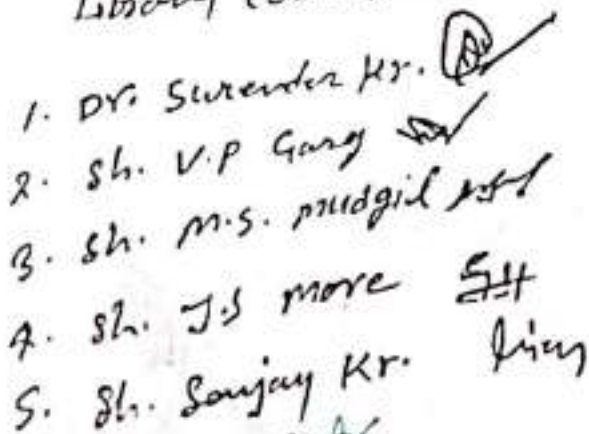 Library
1. Dr. Surender Kr.
2. Sh. V.P Garg
3. Sh. M.S. Mudgil
4. Sh. J.S More
5. Sh. Sanjay Kr.